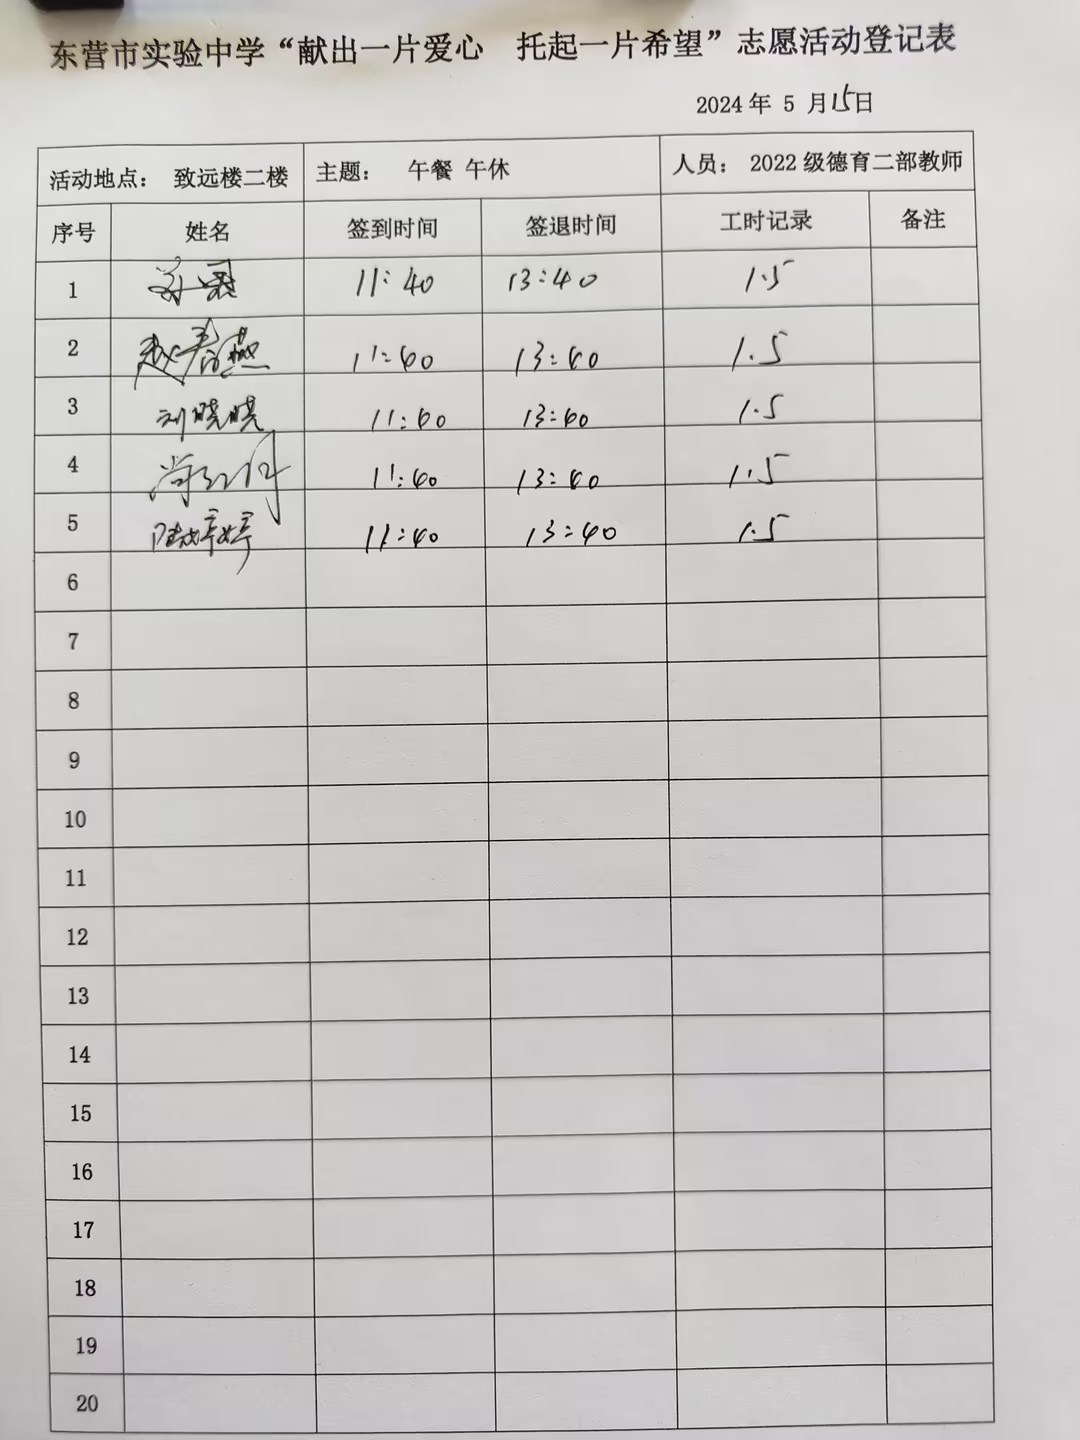 东营市实验中学“献出一片爱心 托起一片希望”志愿活动登记表
2024 年 5 月15日
活动地点： 致远楼二楼 主题： 午餐 午休 人员： 2022 级德育二部教师
序号 姓名 签到时间 签退时间 工时记录 备注
1 11:40 13:40 1.5
2 赵春燕 11:40 13:40 1.5
3 刘晓晓 11:40 13:40 1.5
4 11:40 13:40 1.5
5 陆婷婷 11:40 13:40 1.5
6
7
8
9
10
11
12
13
14
15
16
17
18
19
20